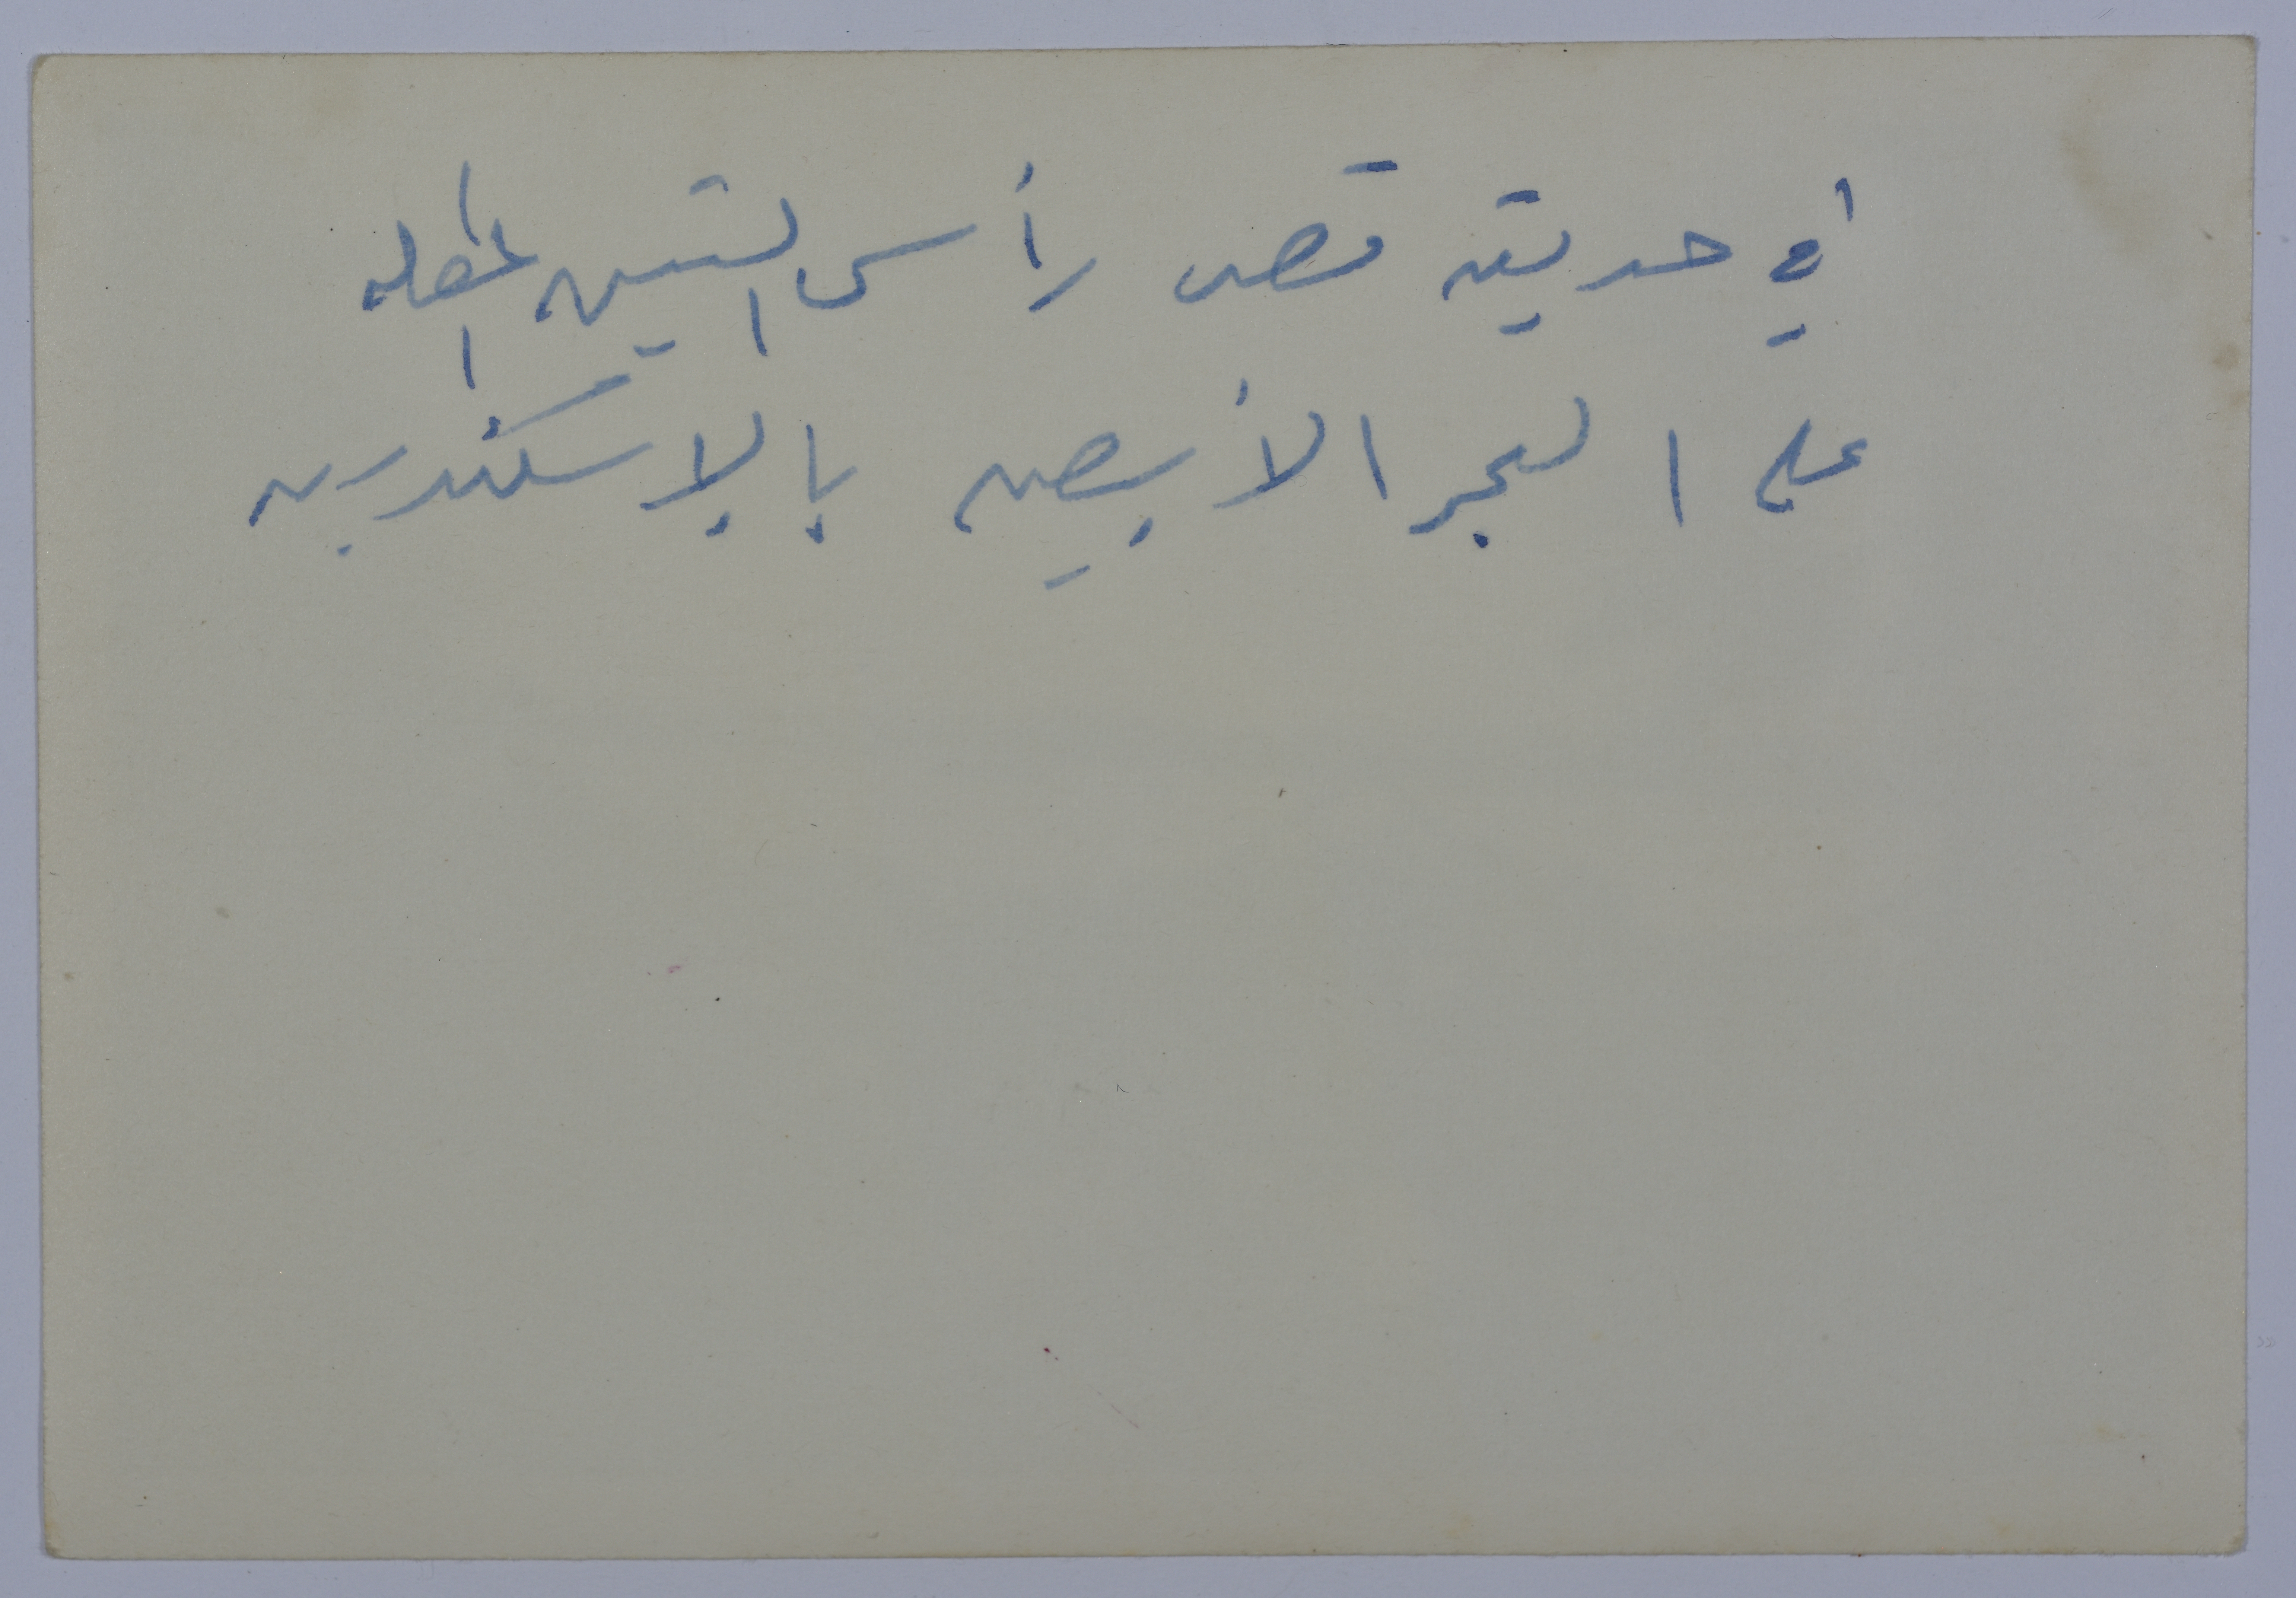 في حديقة قصر رأس التين المطله
على البحر الأبيض بالإسكندرية